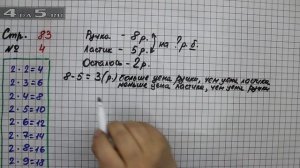 Стр. 83
№ 4
Ручка - 8р.
Ластик - 5р.
на ? р. б.
Осталось - 2р.
8-5=3(р.) больше цена ручки, чем цена ластика
меньше цена ластика, чем цена ручки
2·2=4
2·3=6
2·4=8
2·5=10
2·6=12
2·7=14
2·8=16
2·9=18